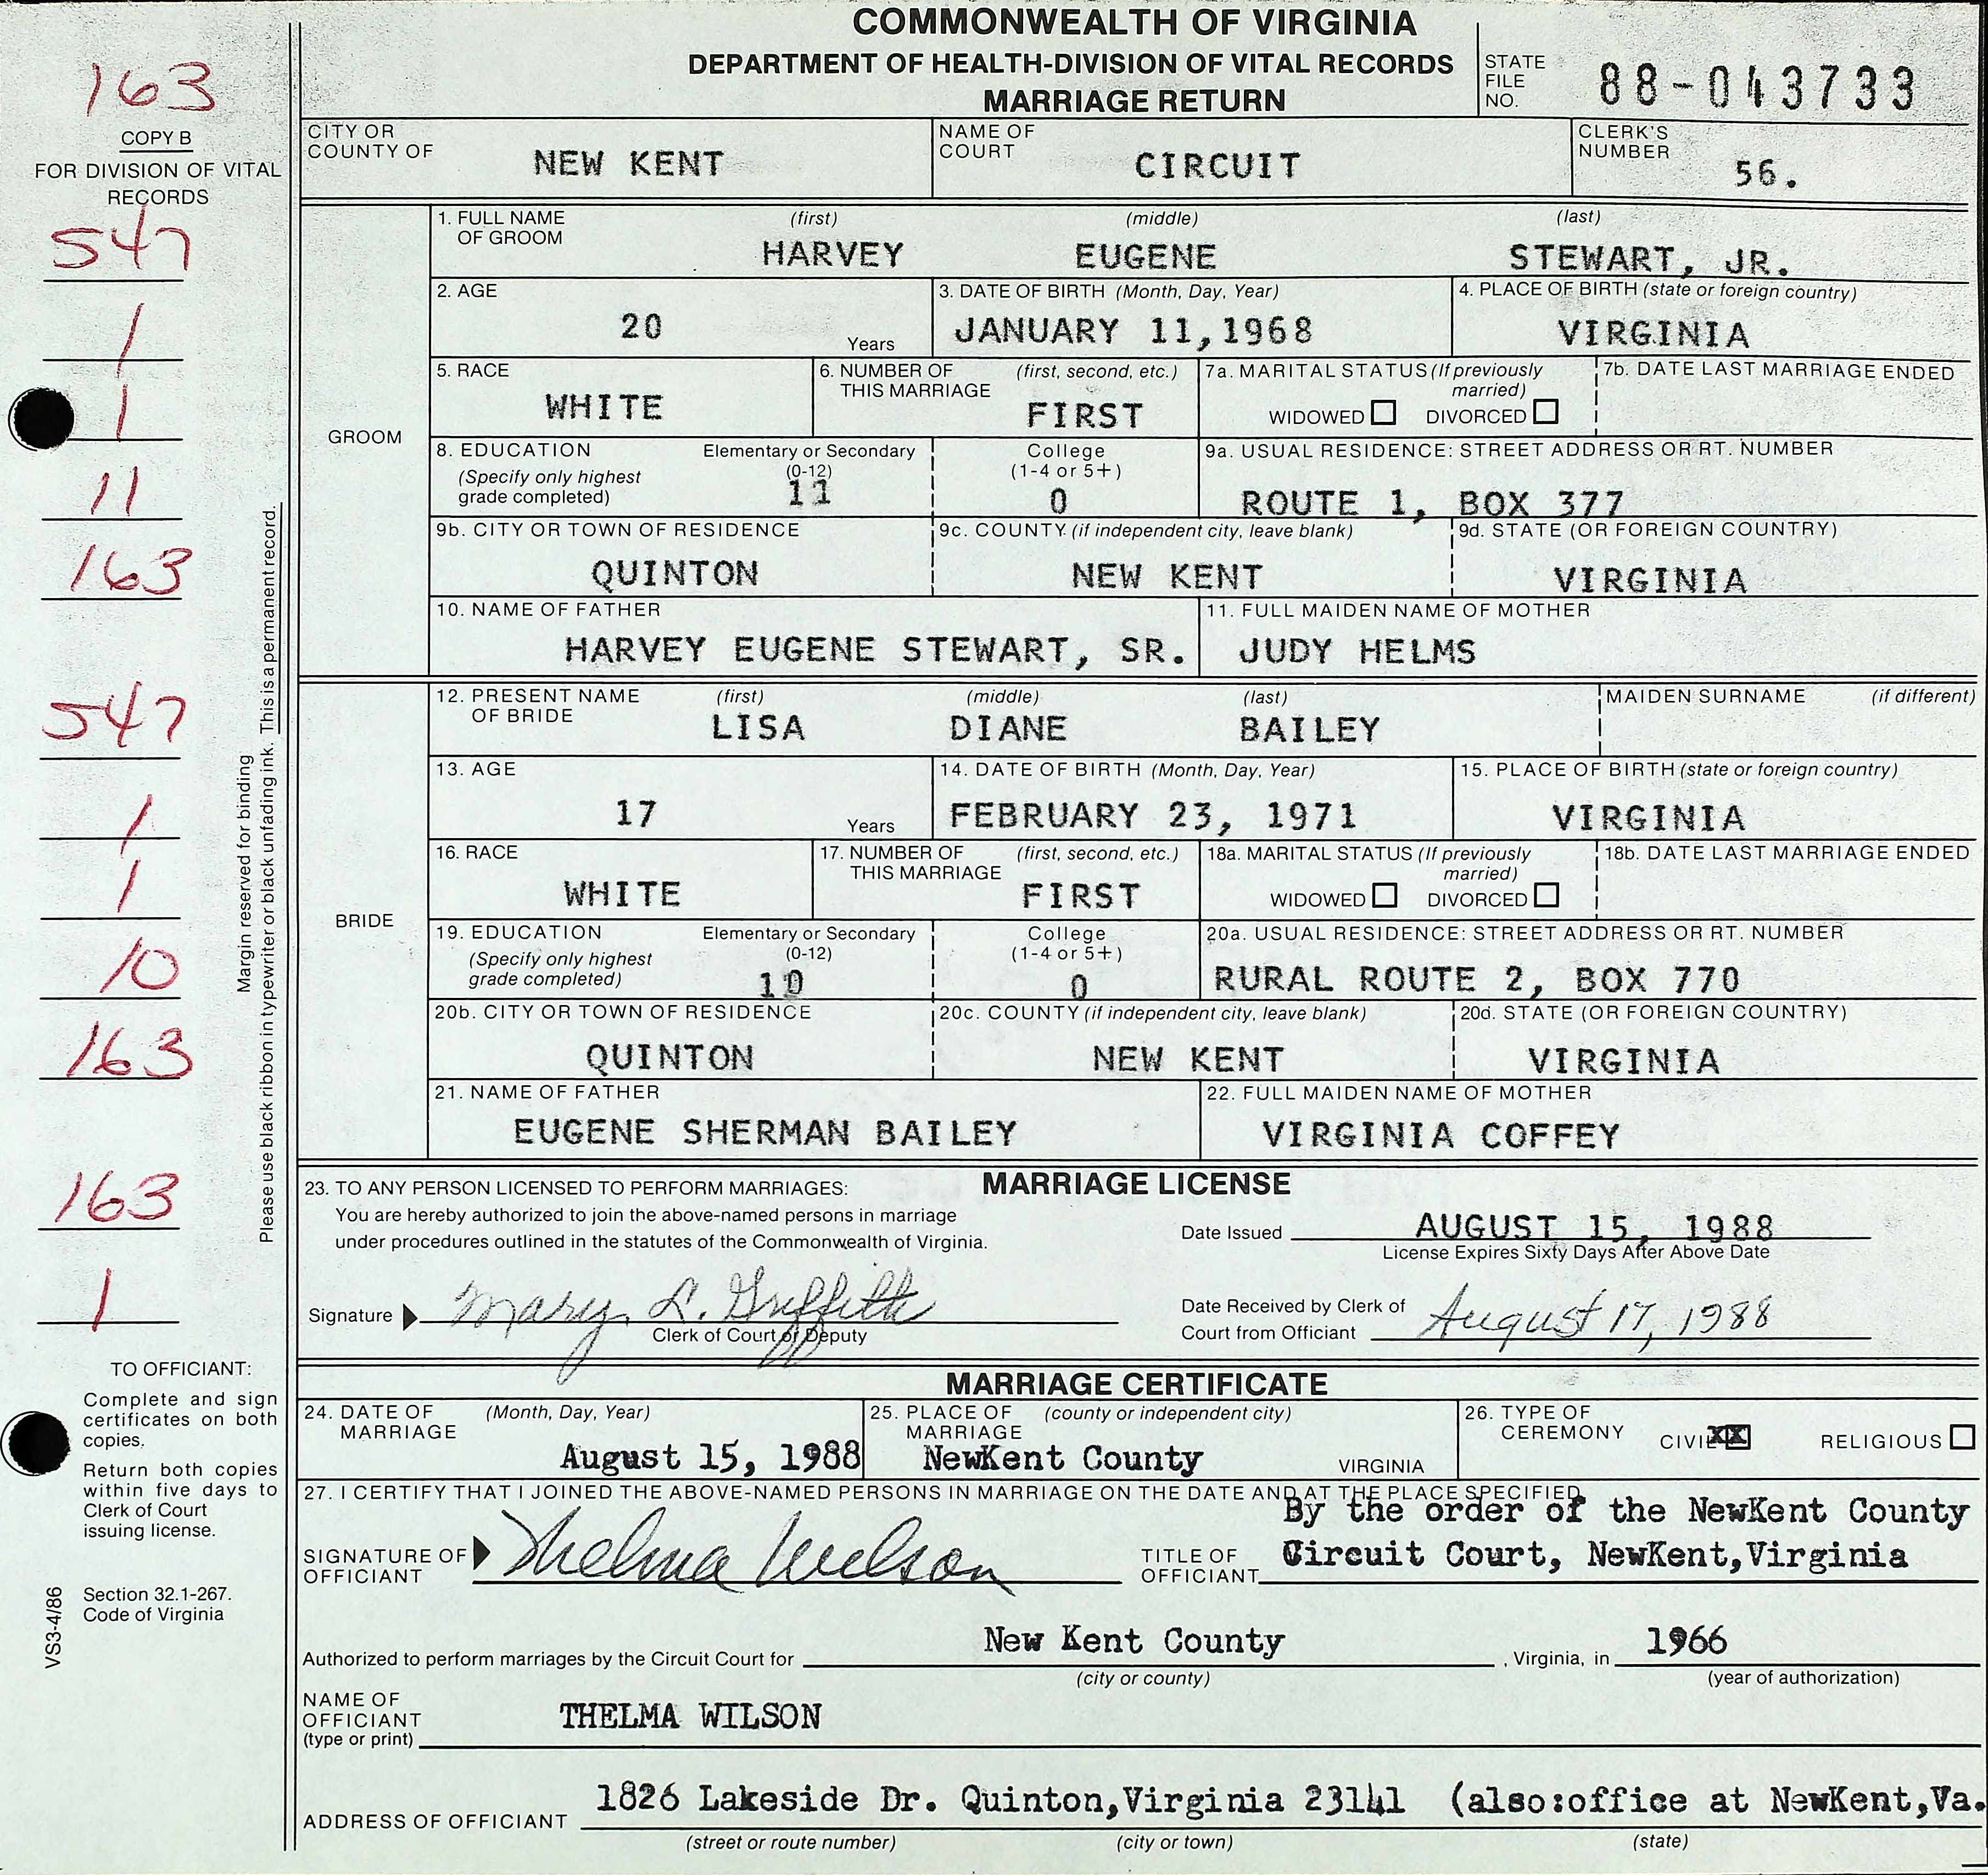 COMMONWEALTH OF VIRGINIA
DEPARTMENT OF HEALTH-DIVISION OF VITAL RECORDS
MARRIAGE RETURN
STATE FILE NO. 88-043733
163
COPY B
FOR DIVISION OF VITAL RECORDS
547
1
1
11
163
547
1
1
10
163
163
1
Margin reserved for binding
Please use black ribbon in typewriter or black unfading ink. This is a permanent record.
TO OFFICIANT:
Complete and sign
certificates on both
copies.
Return both copies
within five days to
Clerk of Court
issuing license.
Section 32.1-267.
Code of Virginia
VS3-4/86
CITY OR COUNTY OF NEW KENT
NAME OF COURT CIRCUIT
CLERK'S NUMBER 56.
GROOM
1. FULL NAME OF GROOM (first) HARVEY (middle) EUGENE (last) STEWART, JR.
2. AGE 20 Years
3. DATE OF BIRTH (Month, Day, Year) JANUARY 11,1968
4. PLACE OF BIRTH (state or foreign country) VIRGINIA
5. RACE WHITE
6. NUMBER OF THIS MARRIAGE (first, second, etc.) FIRST
7a. MARITAL STATUS (If previously married) WIDOWED DIVORCED
7b. DATE LAST MARRIAGE ENDED
8. EDUCATION (Specify only highest grade completed) Elementary or Secondary (0-12) 11
College (1-4 or 5+) 0
9a. USUAL RESIDENCE: STREET ADDRESS OR RT. NUMBER ROUTE 1, BOX 377
9b. CITY OR TOWN OF RESIDENCE QUINTON
9c. COUNTY (if independent city, leave blank) NEW KENT
9d. STATE (OR FOREIGN COUNTRY) VIRGINIA
10. NAME OF FATHER HARVEY EUGENE STEWART, SR.
11. FULL MAIDEN NAME OF MOTHER JUDY HELMS
BRIDE
12. PRESENT NAME OF BRIDE (first) LISA (middle) DIANE (last) BAILEY
MAIDEN SURNAME (if different)
13. AGE 17 Years
14. DATE OF BIRTH (Month, Day, Year) FEBRUARY 23, 1971
15. PLACE OF BIRTH (state or foreign country) VIRGINIA
16. RACE WHITE
17. NUMBER OF THIS MARRIAGE (first, second, etc.) FIRST
18a. MARITAL STATUS (If previously married) WIDOWED DIVORCED
18b. DATE LAST MARRIAGE ENDED
19. EDUCATION (Specify only highest grade completed) Elementary or Secondary (0-12) 10
College (1-4 or 5+) 0
20a. USUAL RESIDENCE: STREET ADDRESS OR RT. NUMBER RURAL ROUTE 2, BOX 770
20b. CITY OR TOWN OF RESIDENCE QUINTON
20c. COUNTY (if independent city, leave blank) NEW KENT
20d. STATE (OR FOREIGN COUNTRY) VIRGINIA
21. NAME OF FATHER EUGENE SHERMAN BAILEY
22. FULL MAIDEN NAME OF MOTHER VIRGINIA COFFEY
MARRIAGE LICENSE
23. TO ANY PERSON LICENSED TO PERFORM MARRIAGES:
You are hereby authorized to join the above-named persons in marriage
under procedures outlined in the statutes of the Commonwealth of Virginia.
Date Issued AUGUST 15, 1988
License Expires Sixty Days After Above Date
Signature Mary L. Griffith
Clerk of Court or Deputy
Date Received by Clerk of Court from Officiant August 17, 1988
MARRIAGE CERTIFICATE
24. DATE OF MARRIAGE (Month, Day, Year) August 15, 1988
25. PLACE OF MARRIAGE (county or independent city) NewKent County VIRGINIA
26. TYPE OF CEREMONY CIVIL XX RELIGIOUS
27. I CERTIFY THAT I JOINED THE ABOVE-NAMED PERSONS IN MARRIAGE ON THE DATE AND AT THE PLACE SPECIFIED.
SIGNATURE OF OFFICIANT Thelma Wilson
TITLE OF OFFICIANT By the order of the NewKent County
Circuit Court, NewKent,Virginia
Authorized to perform marriages by the Circuit Court for New Kent County, Virginia, in 1966
(city or county) (year of authorization)
NAME OF OFFICIANT (type or print) THELMA WILSON
ADDRESS OF OFFICIANT 1826 Lakeside Dr. Quinton,Virginia 23141 (also:office at NewKent,Va.
(street or route number) (city or town) (state)